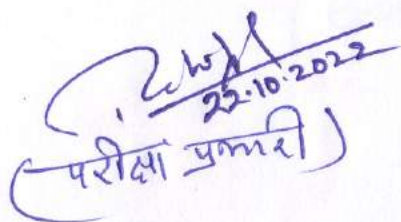 22.10.2022
(परीक्षा प्रभारी)